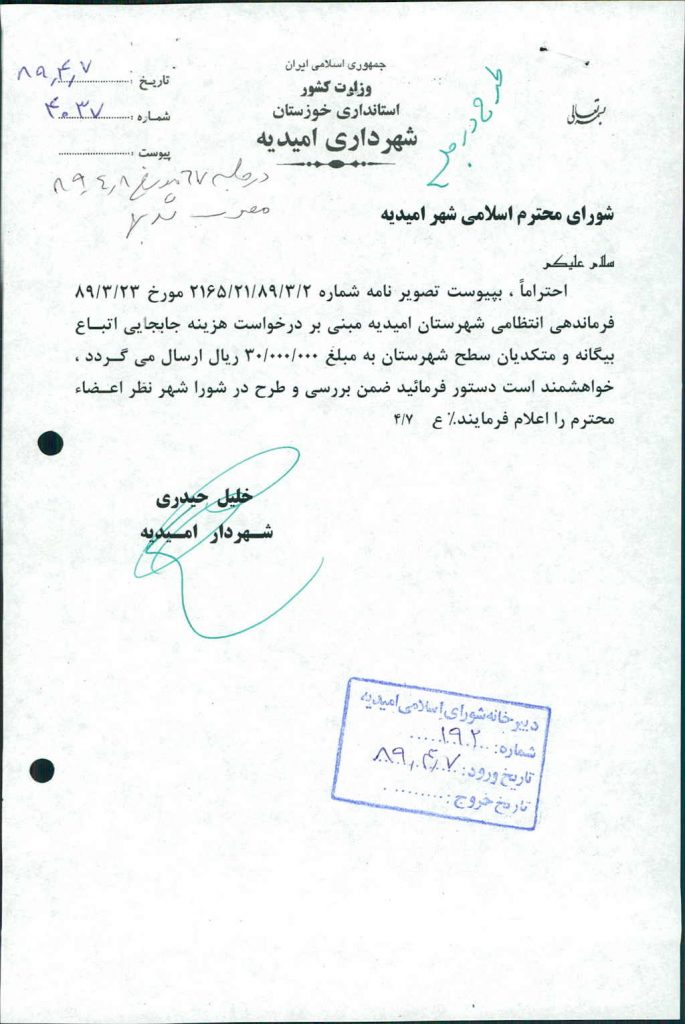 بسمه تعالی
جمهوری اسلامی ایران
وزارت کشور
استانداری خوزستان
شهرداری امیدیه
تاریخ : ۸۹,۴,۷
شماره : ۴۰۳۷
پیوست :
طرح در جلسه
در جلسه ۶۷ مورخ ۸۹,۴,۸
شورای محترم اسلامی شهر امیدیه
سلام علیکم
احتراماً ، بپیوست تصویر نامه شماره ۲۱۶۵/۲۱/۸۹/۳/۲ مورخ ۸۹/۳/۲۳
فرماندهی انتظامی شهرستان امیدیه مبنی بر درخواست هزینه جابجایی اتباع
بیگانه و متکدیان سطح شهرستان به مبلغ ۳۰/۰۰۰/۰۰۰ ریال ارسال می گردد ،
خواهشمند است دستور فرمائید ضمن بررسی و طرح در شورا شهر نظر اعضاء
محترم را اعلام فرمایند٪ ع ۴/۷
خلیل حیدری
شهردار امیدیه
دبیرخانه شورای اسلامی امیدیه
شماره: ۱۹۲
تاریخ ورود: ۸۹,۴,۷
تاریخ خروج: